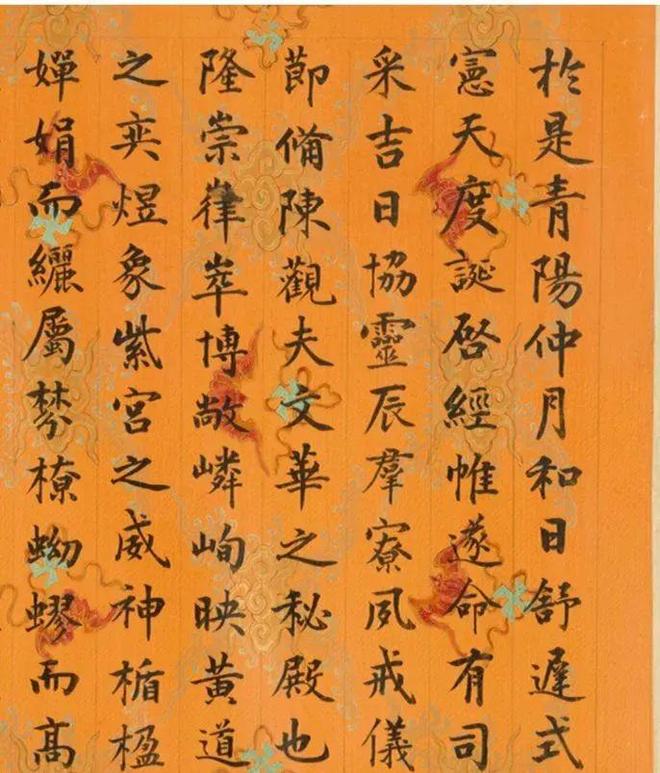 於是青陽仲月和日舒遲式
憲天度誕啓經帷遂命有司
采吉日協靈辰羣寮夙戒儀
莭備陳觀夫文華之秘殿也
隆崇嵂崒博敞嶙峋映黃道
之奕煜象紫宮之威神楯楹
嬋娟而纚屬棼橑蚴蟉而高